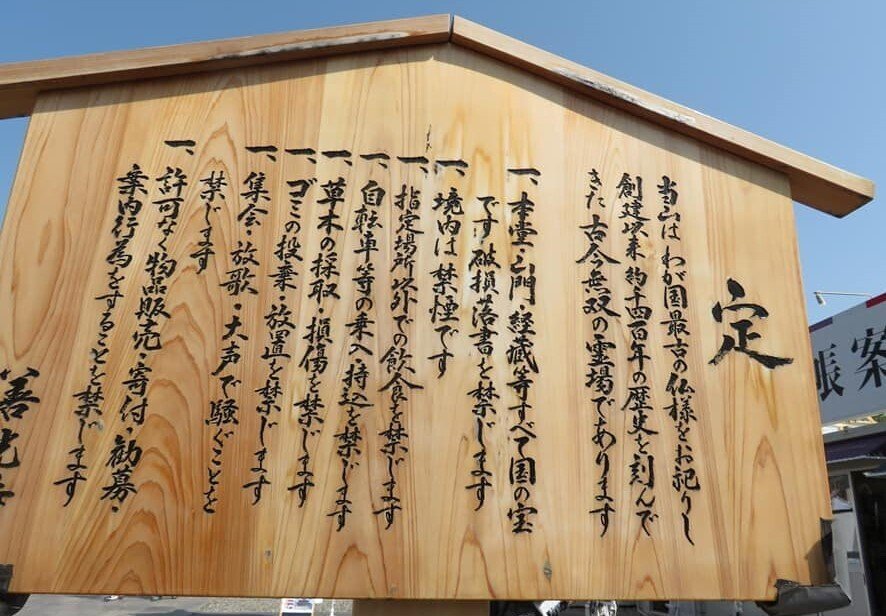 定
当山はわが国最古の仏様をお祀りし
創建以来約千四百年の歴史を刻んで
きた古今無双の霊場であります
一、本堂・三門・経蔵等すべて国の宝
です破損落書を禁じます
一、境内は禁煙です
一、指定場所以外での飲食を禁じます
一、自転車等の乗入持込を禁じます
一、草木の採取・損傷を禁じます
一、ゴミの投棄・放置を禁じます
一、集会・放歌・大声で騒ぐことを
禁じます
一、許可なく物品販売・寄付・勧募・
案内行為をすることを禁じます
善光寺
帳案